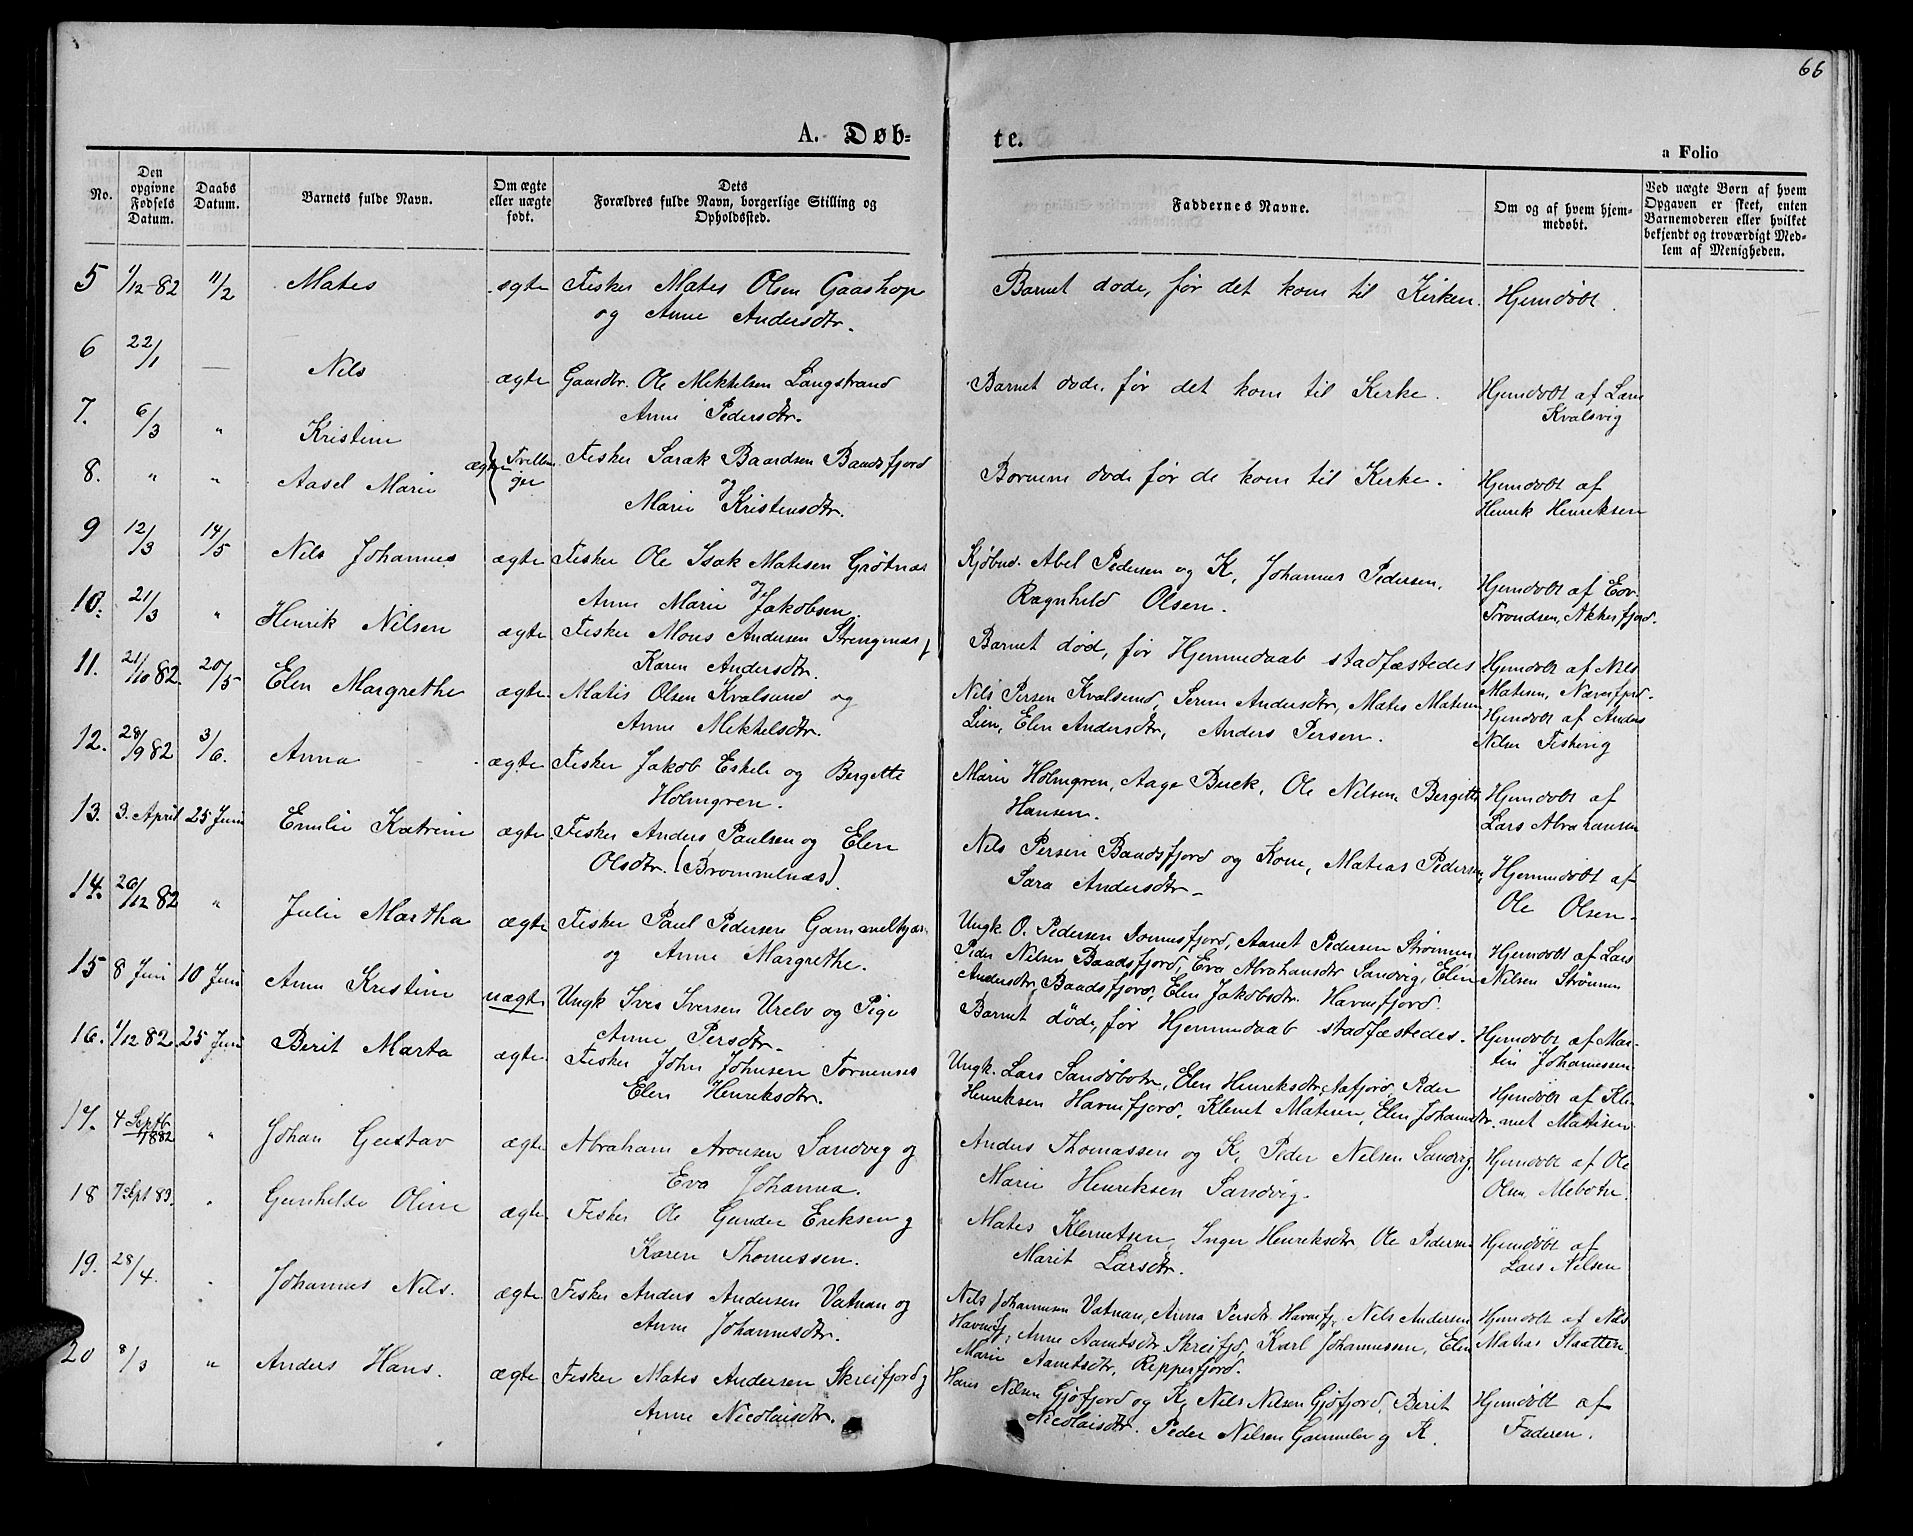 66
A. Døb-
te.
a Folio
No.
Den opgivne Fødsels Datum.
Daabs Datum.
Barnets fulde Navn.
Om ægte eller uægte født.
Dets Forældres fulde Navn, borgerlige Stilling og Opholdssted.
Faddernes Navne.
Om og af hvem hjemmedøbt.
Ved uægte Børn af hvem Opgaven er skeet, enten Barnemoderen eller hvilket bekjendt og troværdigt Medlem af Menigheden.
5 1/12-82 11/2 Mates ægte Fisker Mates Olsen Gaashop Barnet døde, før det kom til Kirken. Hjemdøbt.
og Anne Andersdtr.
6 22/1 — Nils ægte Gaardbr. Ole Mikkelsen Langstrand Barnet døde, før det kom til Kirke. Hjemdøbt af Lars
Anne Pedersdtr. Kvalsvig
7. 6/3 " Kristine
8. " " Aasel Marie ægte Tvillinger Fisker Sarak Baardsen Baadsfjord Børnene døde før de kom til Kirke. Hjemdøbt af
og Marie Kristensdtr. Henrik Henriksen
9 12/3 14/5 Nils Johannes ægte Fisker Ole Isak Matisen Grøtnæs Kjøbmd. Abel Pedersen og K, Johannes Pedersen, Hjemdøbt af
og Anne Marie Jakobsen. Ragnhild Olsen. Trondsen, Akkerfjord.
10. 21/3 " Henrik Nilsen ægte Fisker Mons Andersen Strengnæs Barnet død, før Hjemmedaab stadfæstedes Hjemdøbt af Nils
Karen Andersdtr. Matisen, Næverfjord.
11. 21/10 82. 20/5 Elen Margrethe ægte Matis Olsen Kvalsund og Nils Persen Kvalsund, Seren Andersdtr, Mates Matisen Hjemdøbt af Anders
Anne Mikkelsdtr. Lien, Elen Andersdtr, Anders Persen. Nilsen Fiskevig
12. 28/9 82 3/6. Anna ægte Fisker Jakob Eskels og Bergette Marie Holmgren, Aage Buck, Ole Nilsen, Bergitte Hjemdøbt af
Holmgren. Hansen. Lars Abrahamsen
13. 3. April 25 Juni Emilie Katrine ægte Fisker Anders Paulsen og Elen Nils Persen Baadsfjord og Kone, Matias Pedersen, Hjemmedøbt af
Olsdtr. (Brommelnæs). Sara Andersdtr. Ole Olsen.
14. 26/12 82 " Julie Martha ægte Fisker Paul Pedersen Gammelbyen Ungk. O. Pedersen Donnesfjord, Aamet Pedersen Strømmen Hjemdøbt af Lars
og Anne Margrethe. Peder Nilsen Baadsfjord, Eva Abrahamsdtr Sandvig, Elen Nilsen Strømmen
Andersdtr, Baadsfjord, Elen Jakobsdtr. Havnefjord.
15 8 Juni 10 Juni Anne Kristine uægte Ungk Iver Iversen Urelv og Pige Barnet døde, før Hjemmedaab stadfæstedes. Hjemdøbt af Mar-
Anne Persdtr. tin Johannessen.
16. 1/12 82. 25 Juni Berit Marta ægte Fisker John Johnsen Torneness Ungk. Lars Sandøbotn, Elen Henriksdtr Aafjord, Peder Hjemdøbt af Kle-
Elen Henriksdtr. Henriksen Havnefjord, Klemet Matisen, Elen Johannsdtr. met Mattisen
17. 4 Septb. 1882 " Johan Gustav ægte Abraham Aronsen Sandvig og Anders Thomassen og K, Peder Nilsen Sandvig, Hjemdøbt af Ole
Eva Johanna. Marie Henriksen Sandvig. Olsen, Mebotn.
18 7 Sept 83. " Gunhilde Oline ægte Fisker Ole Gunder Eriksen og Mates Klemetsen, Inger Henriksdtr Ole Pedersen Hjemdøbt af
Karen Thomassen. Marit Larsdtr. Lars Nilsen
19. 28/4. " Johannes Nils. ægte Fisker Anders Andersen Vatnan og Nils Johannesen Vatnan, Anna Persdtr Havnefj, Nils Andersen Hjemdøbt af Nils
Anne Johannesdtr. Havnefj, Anne Aamtsdtr. Skreifjd, Karl Johannessen, Elen Matias Slaatten.
Marie Aamtsdtr, Repperfjord.
20 8/3 " Anders Hans. ægte Fisker Mates Andersen Skreifjord og Hans Nilsen Gjøfjord og K, Nils Nilsen Gjøfjord, Berit Hjemdøbt af
Anne Nicolaisdtr. Nicolaisdtr. Peder Nilsen Gammelev og K. Faderen.